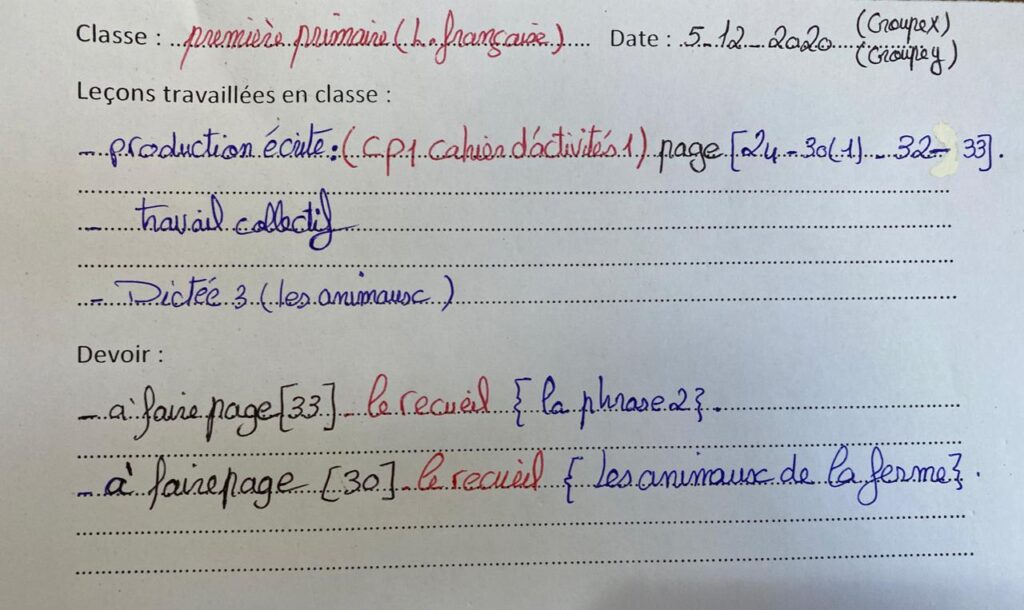 Classe : première primaire (L. française) Date : 5-12-2020 (Groupe x)
(Groupe y)
Leçons travaillées en classe :
- production écrite : (CP1 cahier d'activités 1) page [24 - 30(1) - 32 - 33].
- travail collectif
- Dictée 3 (les animaux)
Devoir :
- à faire page [33] - le recueil { la phrase 2 }.
- à faire page [30] - le recueil { les animaux de la ferme }.